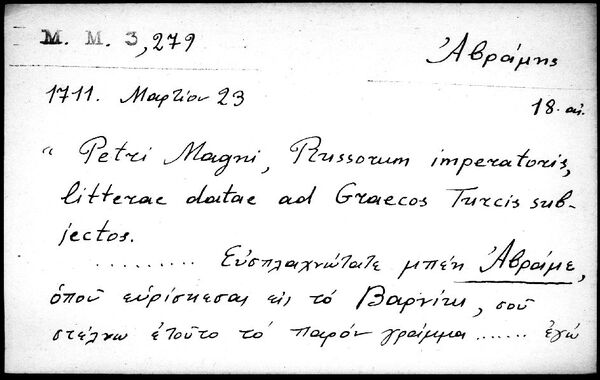 M. M. 3,279
Ἀβράμης
1711. Μαρτίου 23
18. αἰ.
" Petri Magni, Russorum imperatoris,
litterae datae ad Graecos Turcis sub-
jectos.
......... Εὐσπλαχνώτατε μπέη Ἀβράμε,
ὁποῦ εὑρίσκεσαι εἰς τὸ Βαρνίτι, σοῦ
στέλνω ἐτοῦτο τὸ παρὸν γράμμα ...... ἐγώ